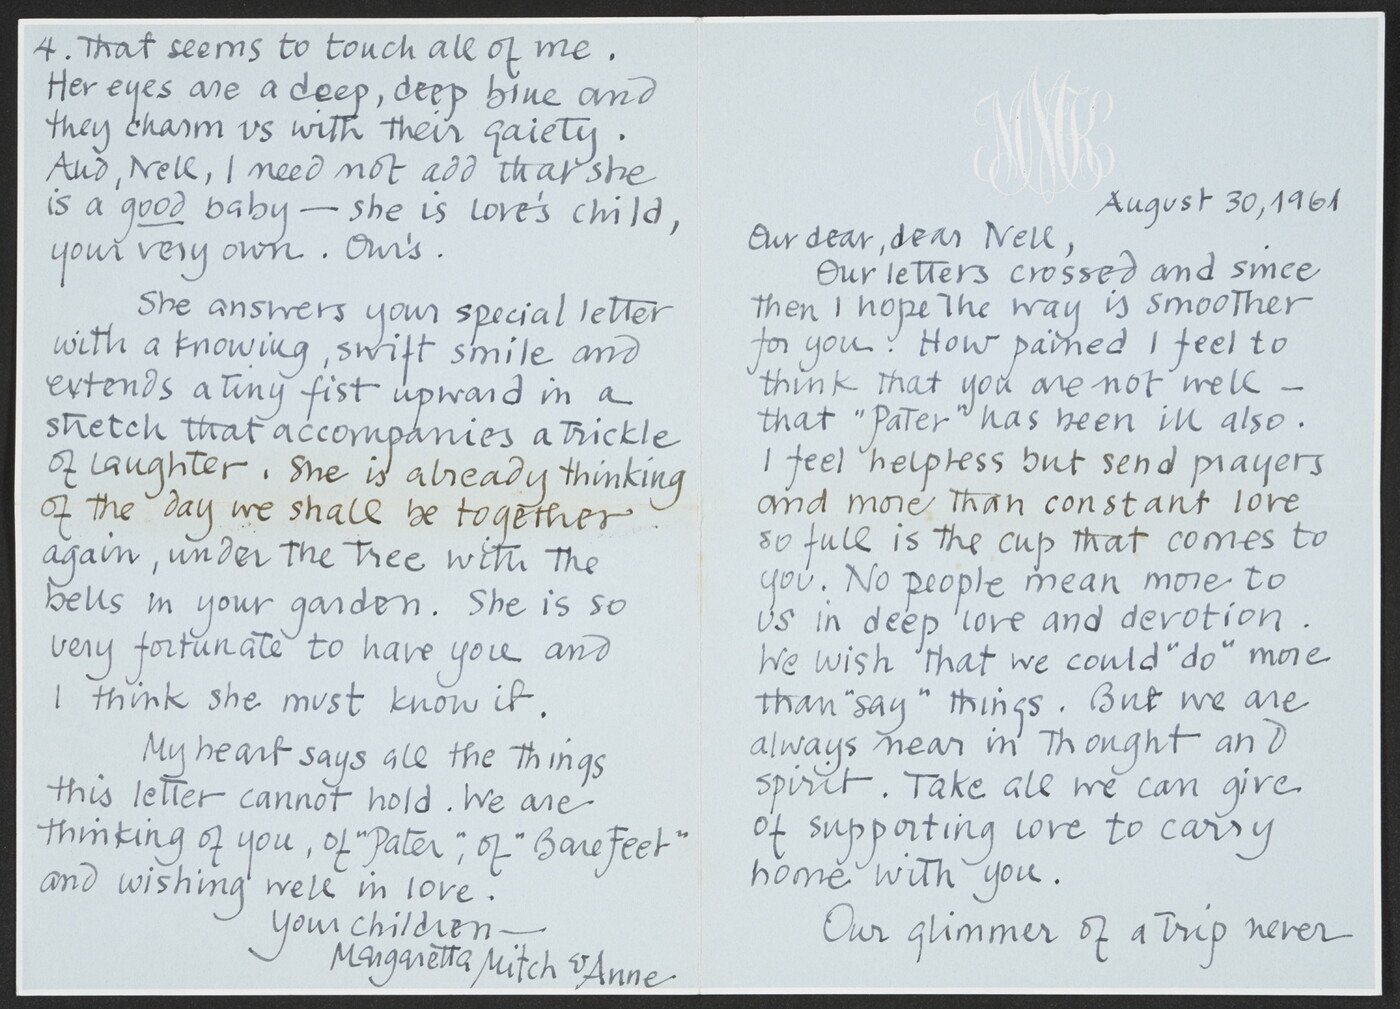 4. That seems to touch all of me.
Her eyes are a deep, deep blue and
they charm us with their gaiety.
And, Nell, I need not add that she
is a good baby — she is love's child,
your very own. Our's.
She answers your special letter
with a knowing, swift smile and
extends a tiny fist upward in a
stretch that accompanies a trickle
of laughter. She is already thinking
of the day we shall be together
again, under the tree with the
bells in your garden. She is so
very fortunate to have you and
I think she must know it.
My heart says all the things
this letter cannot hold. We are
thinking of you, of "Pater", of "Bare Feet"
and wishing well in love.
Your children —
Margaretta, Mitch & Anne
MMK
August 30, 1961
Our dear, dear Nell,
Our letters crossed and since
then I hope the way is smoother
for you. How pained I feel to
think that you are not well —
that "Pater" has been ill also.
I feel helpless but send prayers
and more than constant love
so full is the cup that comes to
you. No people mean more to
us in deep love and devotion.
We wish that we could "do" more
than "say" things. But we are
always near in thought and
spirit. Take all we can give
of supporting love to carry
home with you.
Our glimmer of a trip never